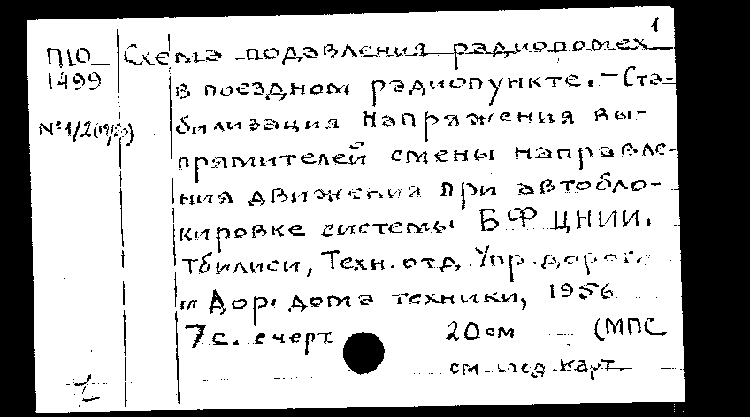 1
П10 Схема подавления радиопомех
1499 в поездном радиопункте. – Ста-
№1/2 билизация напряжения вы-
прямителей смены направле-
ния движения при автобло-
кировке системы БФ ЦНИИ.
Тбилиси, Техн. отд. Упр. дороги
и Дор. дома техники, 1956
7 с. с черт 20 см (МПС
см. след. карт.